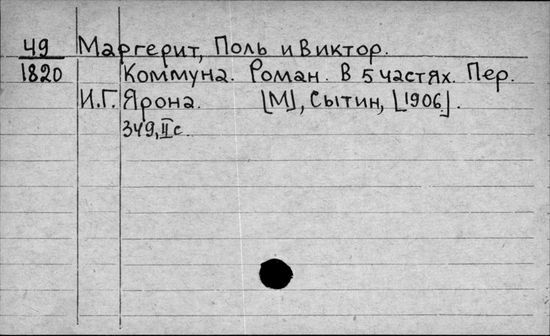 49 Маргерит, Поль и Виктор.
1820 Коммуна. Роман. В 5 частях. Пер.
И.Г. Ярона. [М], Сытин, [1906].
349, II с.